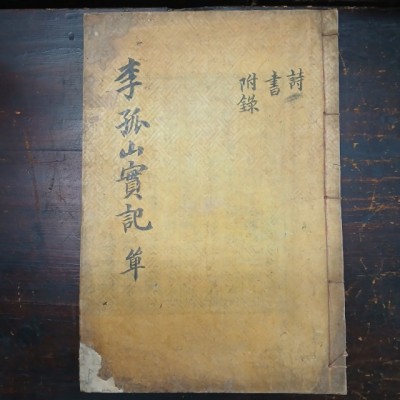 詩
書
附錄
李孤山實記 單